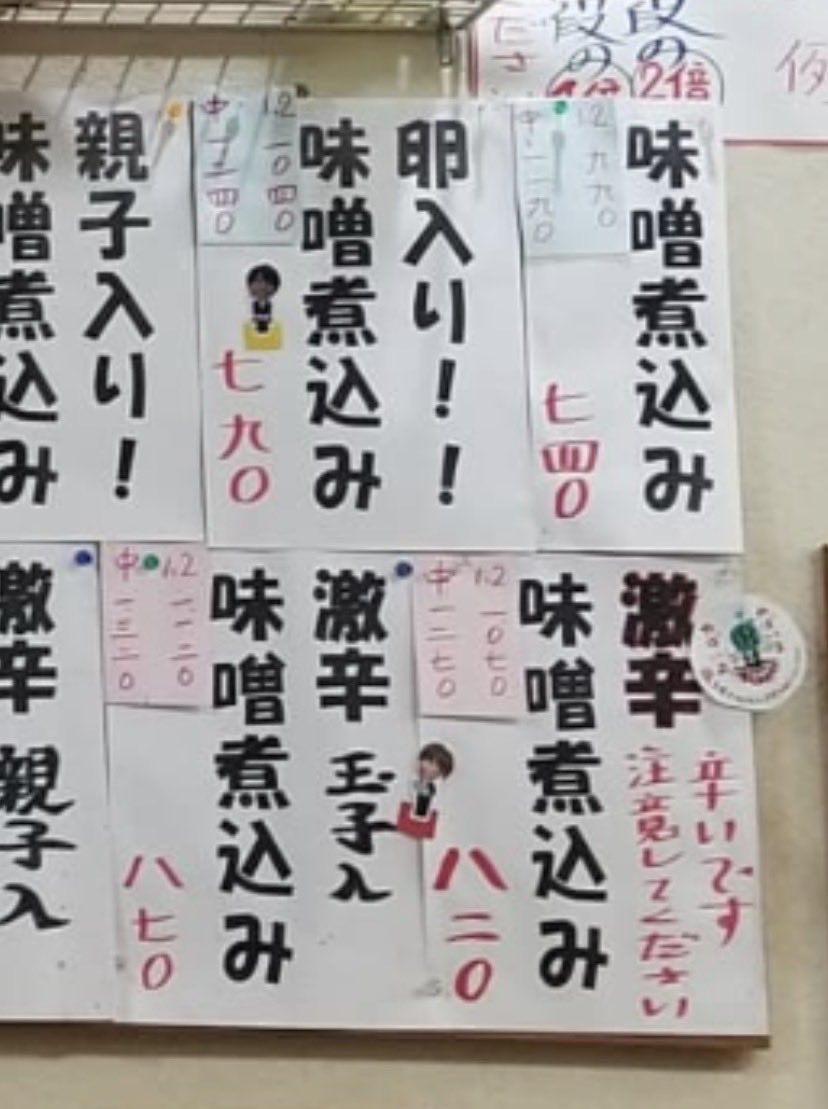 ださ
段の
2倍
味噌煮込み
七四0
1.2
九九0
中
一一九0
卵入り!!
味噌煮込み
七九0
1.2
一0四0
中
一二四0
親子入り!
味噌煮込み
激辛
辛いです
注意してください
味噌煮込み
八二0
1.2
一0七0
中
一二七0
激辛 玉子入
味噌煮込み
八七0
1.2
一一二0
中
一三二0
激辛 親子入